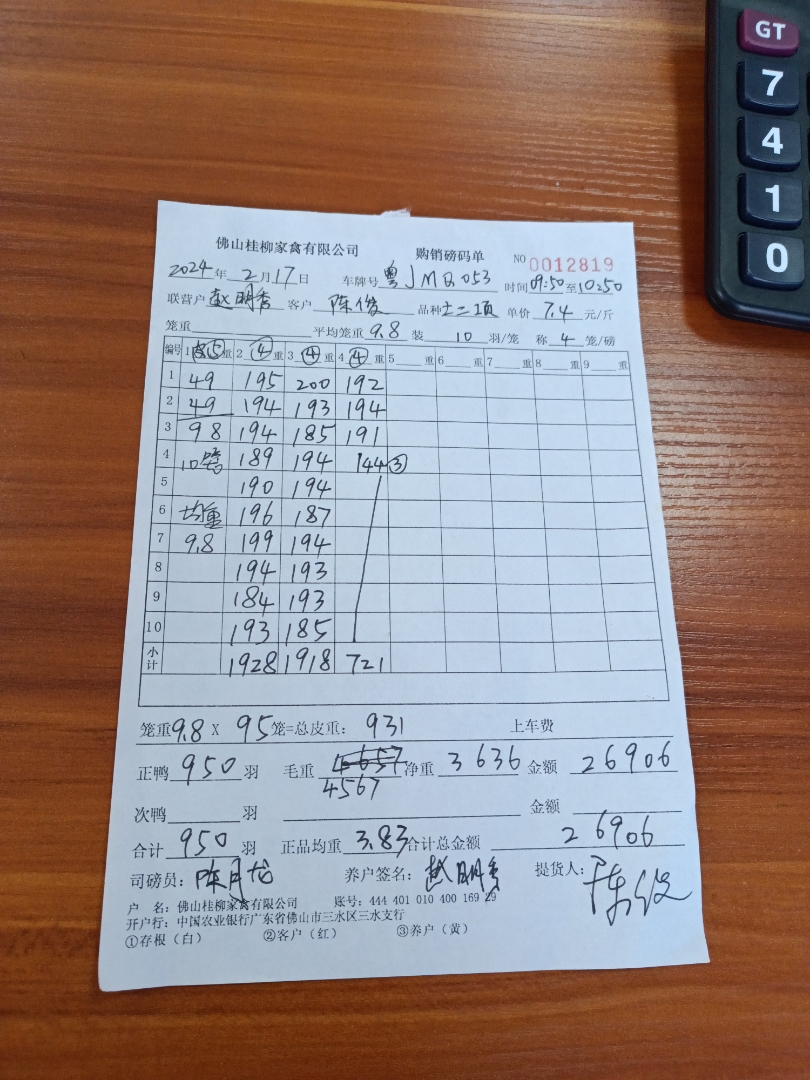 GT
7
4
1
0
佛山桂柳家禽有限公司 购销磅码单 NO 0012819
2024年2月17日 车牌号 粤JMQ053 时间09:50至10:50
联营户 赵明秀 客户 陈俊 品种 土二项 单价 7.4 元/斤
笼重 平均笼重 9.8 装 10 羽/笼 称 4 笼/磅
编号 1 皮⑤ 重 2 ④ 重 3 ④ 重 4 ④ 重 5 重 6 重 7 重 8 重 9 重
1 49 195 200 192
2 49 194 193 194
3 98 194 185 191
4 10笼 189 194 144③
5 190 194
6 均重 196 187
7 9.8 199 194
8 194 193
9 184 193
10 193 185
小计 1928 1918 721
笼重9.8 X 95笼=总皮重: 931 上车费
正鸭 950 羽 毛重 4657 净重 3636 金额 26906
4567
次鸭 羽 金额
合计 950 羽 正品均重 3.83 合计总金额 26906
司磅员: 陈月龙 养户签名: 赵明秀 提货人: 陈俊
户 名: 佛山桂柳家禽有限公司 账号: 444 401 010 400 169 29
开户行: 中国农业银行广东省佛山市三水区三水支行
①存根(白) ②客户(红) ③养户(黄)